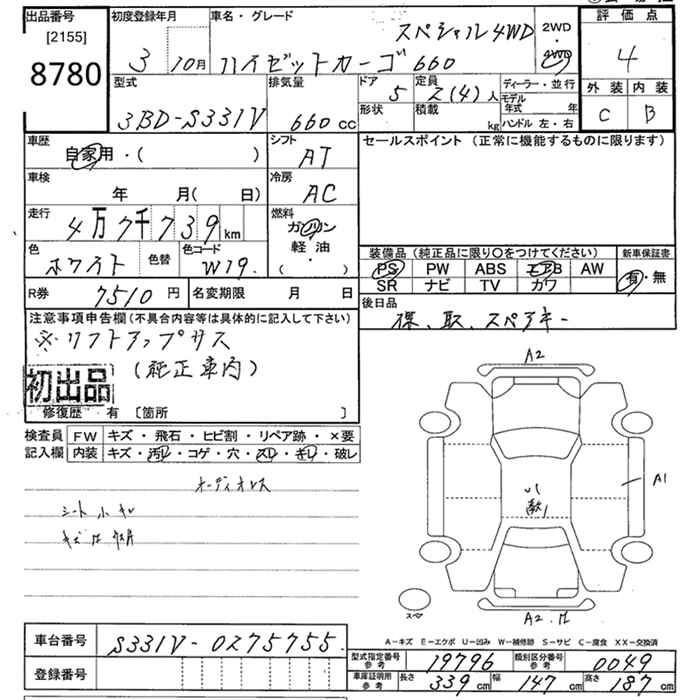 出品番号
[2155]
8780
初度登録年月
3 10月
車名・グレード
スペシャル4WD
ハイゼットカーゴ 660
2WD
4WD
評価点
4
外装 内装
C B
型式
3BD-S331V
排気量
660 cc
ドア
5
定員
2(4)人
形状
積載
kg
ディーラー・並行
モデル年式 年
ハンドル 左・右
車歴
自家用・( )
シフト
AT
セールスポイント (正常に機能するものに限ります)
車検
年 月( 日)
冷房
AC
走行
4万7千739km
燃料
ガソリン
軽・油
・( )
色
ホワイト
色替
色コード
W19.
装備品 (純正品に限り○をつけてください)
新車保証書
PS PW ABS エアB AW
SR ナビ TV カワ
有・無
R券 7510 円
名変期限 月 日
後日品
保、取、スペアキー
注意事項申告欄(不具合内容等は具体的に記入して下さい)
※リフトアップサス
(純正車内)
初出品
修復歴 有 〔箇所 〕
検査員
記入欄
FW キズ・飛石・ヒビ割・リペア跡・×要
内装 キズ・汚レ・コゲ・穴・スレ・キレ・破レ
オーディオレス
シート
A2
A1
A2.
スペア
A-キズ E-エクボ U-凹み W-補修跡 S-サビ C-腐食 XX-交換済
車台番号
S331V-0275755
登録番号
型式指定番号
参考
19796
類別区分番号
参考
0049
車庫証明用
参考
長さ 339cm 幅 147cm 高さ 187cm